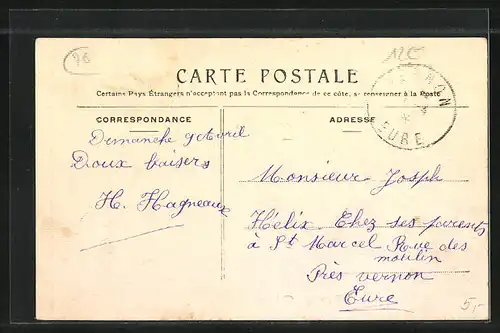 26
12€
CARTE POSTALE
Certains Pays Étrangers n'acceptant pas la Correspondance de ce côté, se renseigner à la Poste
CORRESPONDANCE
ADRESSE
VERNON
EURE
Dimanche 9 Avril
Doux baisers
H. Hagneaux
Monsieur Joseph
Hélix. Chez ses parents
à St Marcel Rue des
moulin
Près vernon
Eure
5,-